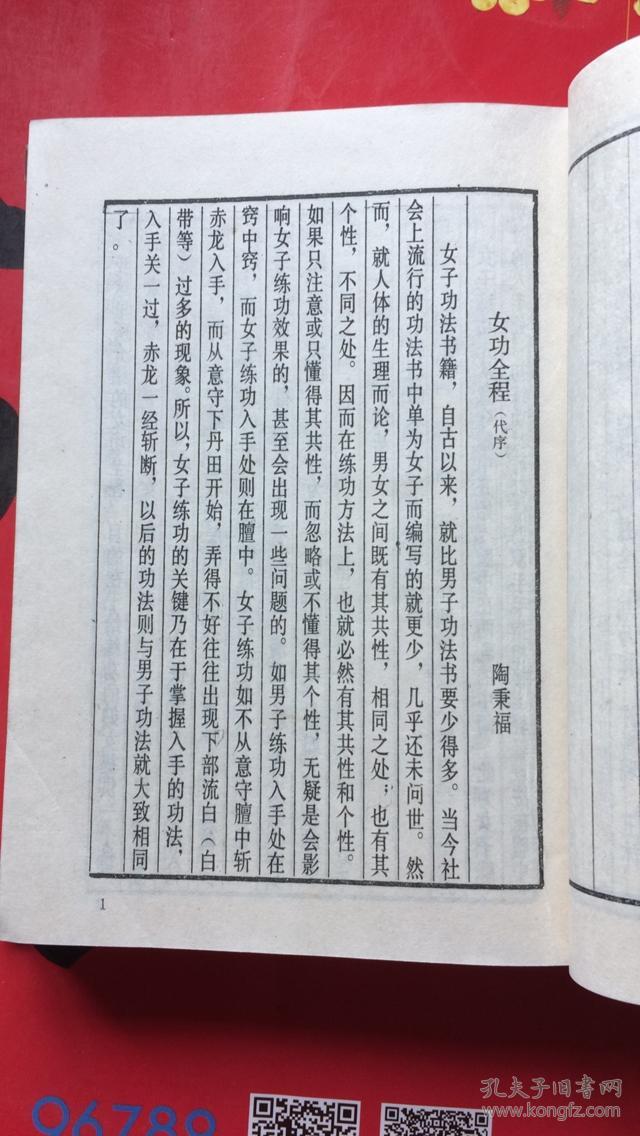 女功全程（代序）
陶秉福
女子功法书籍，自古以来，就比男子功法书要少得多。当今社
会上流行的功法书中单为女子而编写的就更少，几乎还未问世。然
而，就人体的生理而论，男女之间既有其共性，相同之处；也有其
个性，不同之处。因而在练功方法上，也就必然有其共性和个性。
如果只注意或只懂得其共性，而忽略或不懂得其个性，无疑是会影
响女子练功效果的，甚至会出现一些问题的。如男子练功入手处在
窍中窍，而女子练功入手处则在膻中。女子练功如不从意守膻中斩
赤龙入手，而从意守下丹田开始，弄得不好往往出现下部流白（白
带等）过多的现象。所以，女子练功的关键乃在于掌握入手的功法，
入手关一过，赤龙一经斩断，以后的功法则与男子功法就大致相同
了。
1
96789
孔夫子旧书网
www.kongfz.com